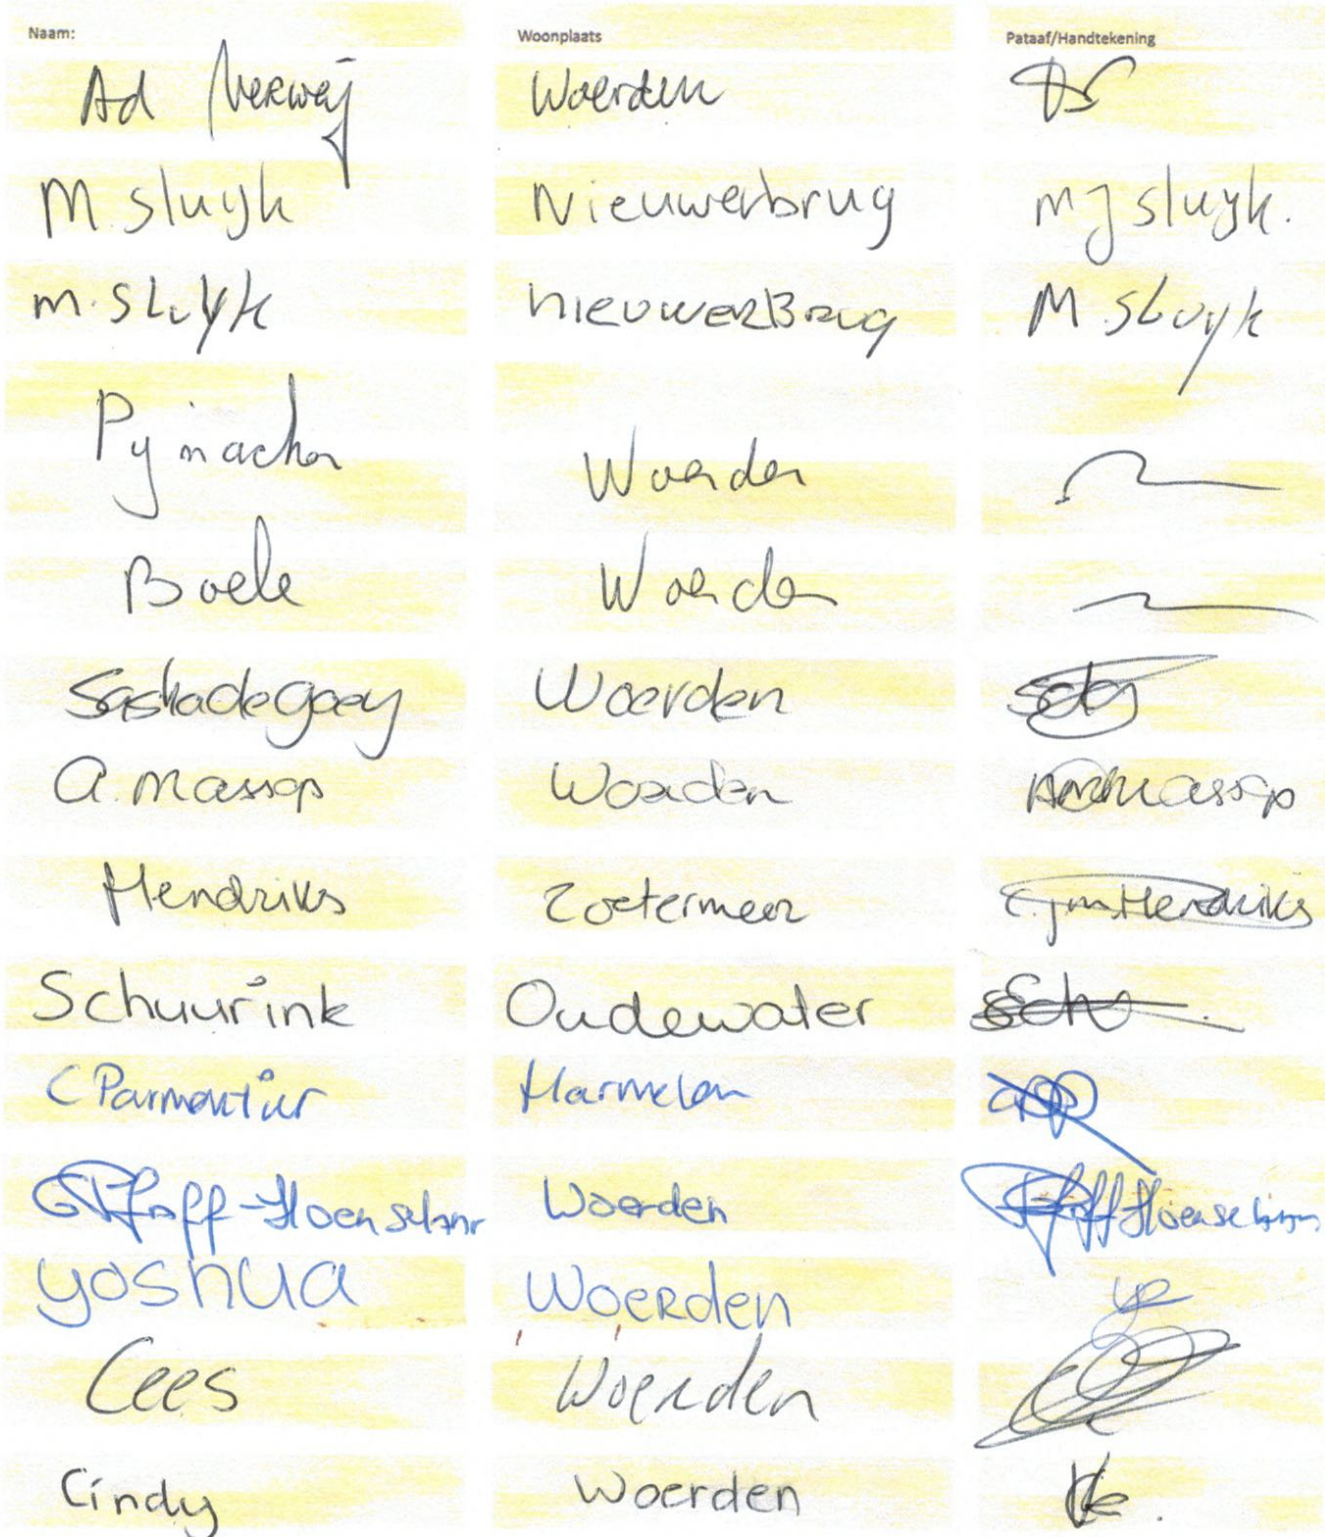 Naam: Woonplaats Pataaf/Handtekening
Ad Verweij Woerden
M. Sluyk Nieuwerbrug MJ Sluyk.
M. SLuyk NieuwerBrug M. SLuyk
Pynacker Woerden
Boele Woerden
Saskia de Gaay Woerden
A. Massop Woerden Massop
Hendriks Zoetermeer Hendriks
Schuurink Oudewater
C Parmentier Harmelen
Woerden
yoshua Woerden
Cees Woerden
Cindy Woerden